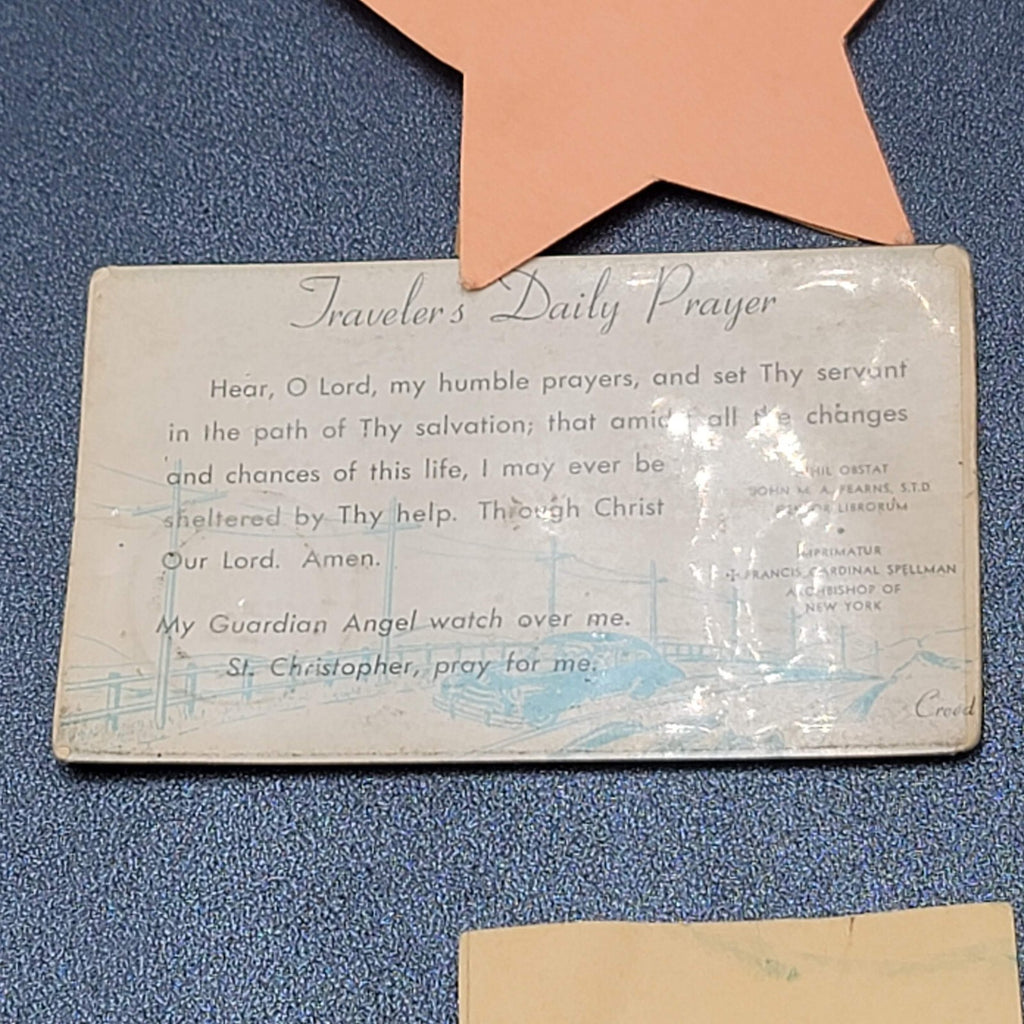 Traveler's Daily Prayer
Hear, O Lord, my humble prayers, and set Thy servant
in the path of Thy salvation; that amidst all the changes
and chances of this life, I may ever be
sheltered by Thy help. Through Christ
Our Lord. Amen.
My Guardian Angel watch over me.
St. Christopher, pray for me.
NIHIL OBSTAT
JOHN M. A. FEARNS, S.T.D.
CENSOR LIBRORUM
IMPRIMATUR
✠ FRANCIS CARDINAL SPELLMAN
ARCHBISHOP OF
NEW YORK
Creed